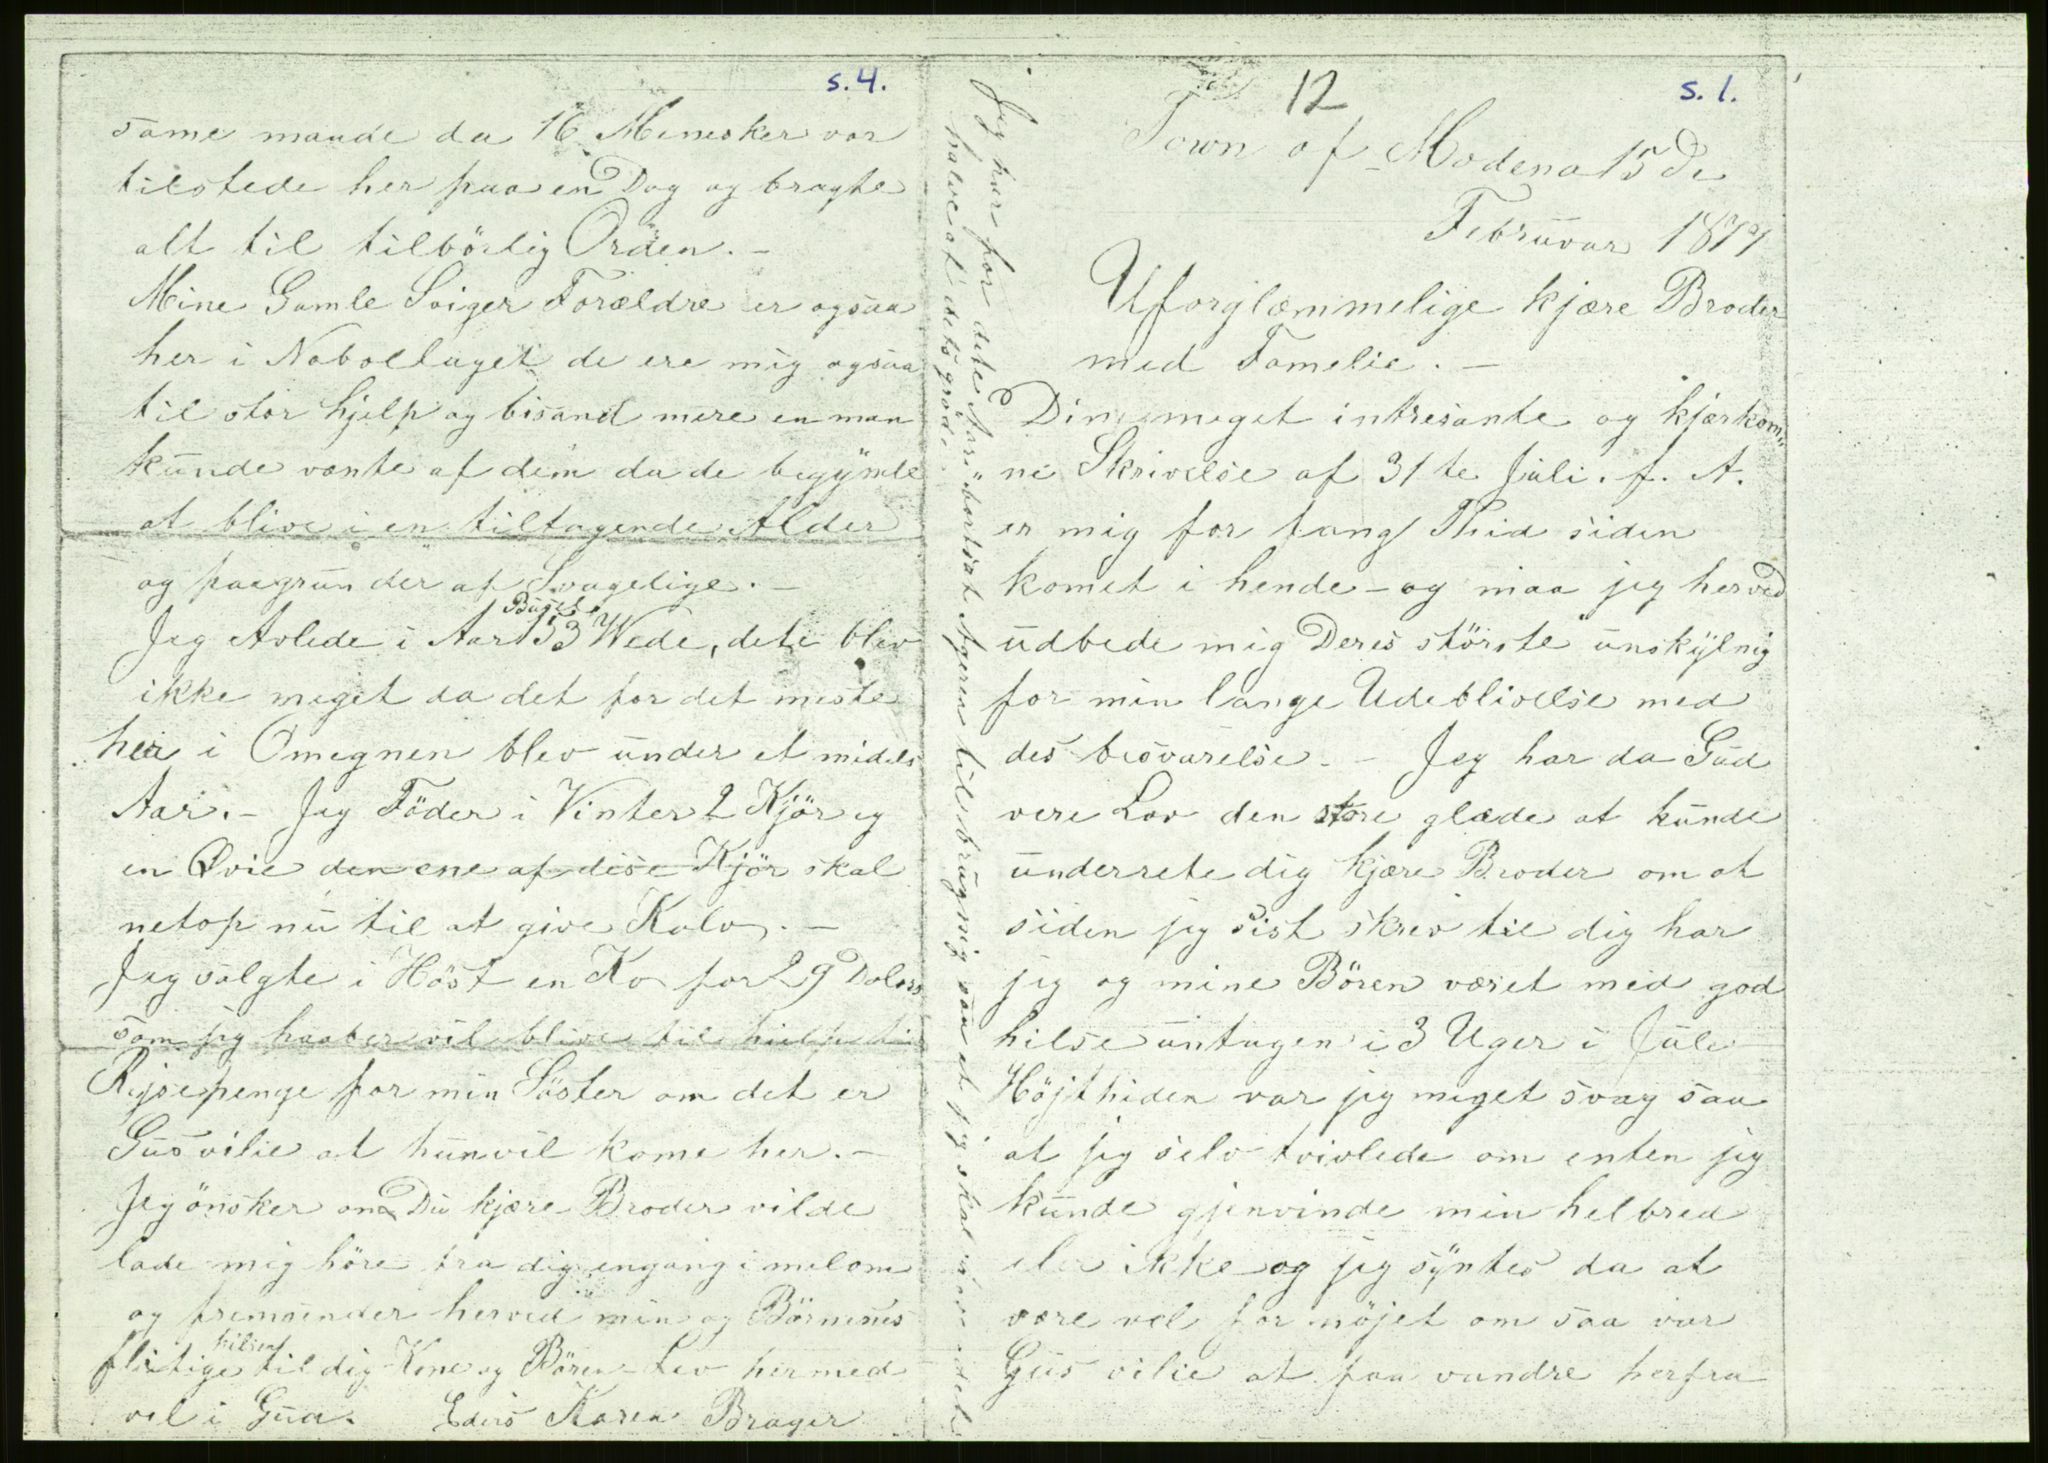 s.4.
same maade da 16 Menesker var
tilstede her paa en Dag og bragte
alt til tilbörlig Orden. –
Mine Gamle Sviger Forældre er ogsaa
her i Nabollaget de ere mig ogsaa
til stor hjelp og bisand mere en man
kunde vante af dem da de begynde
at blive i en tiltagende Alder
og paagrunder af Svagelige. –
Jeg Avlede i Aar 153 Busel Wede, dete blev
ikke meget da det for det meste
her i Omegnen blev under et midels
Aar. – Jeg Föder i Vinter 2 Kjör og
en Qvie den ene af dese Kjör skal
netop nu til at give Kalv. –
Jeg valgte i Höst en Ko for 29 Dolars
som jeg haaber vil blive til hielp til
Rejsepenge for min Söster om det er
Gus vilie at hun vil kome her. –
Jeg önsker om Du kjære Broder vilde
lade mig höre fra dig engang imelom
og fremsender herved min og Börnenes
flitige hilsen til dig Kone og Bören Lev hermed
vel i Gud. Eders Karen Brager
Jeg har for dete Aar bortsat Ageren til brugnig saa at jeg skal have det
halve af dets gröde.
12
s. 1.
Town of Modena 15de
Februar 1877
Uforglæmmelige kjære Broder
med Famelie. –
Din meget intresante og kjærkom-
ne Skrivelse af 31te Juli. f. A.
er mig for lang Thid siden
komet i hende – og maa jeg herved
udbede mig Deres störste unskylnig
for min lange Udeblivelse med
des besvarelse. – Jeg har da Gud
vere Lov den store glæde at kunde
underrete dig kjære Broder om at
siden jeg sist skrev til dig har
jeg og mine Bören været med god
hilse untagen i 3 Uger i Jule
Höjthiden var jeg meget svag saa
at jeg selv tvivlede om enten jeg
kunde gjenvinde min helbred
eler ikke og jeg syntes da at
være vel for nöjet om saa var
Gus vilie at faa vandre herfra